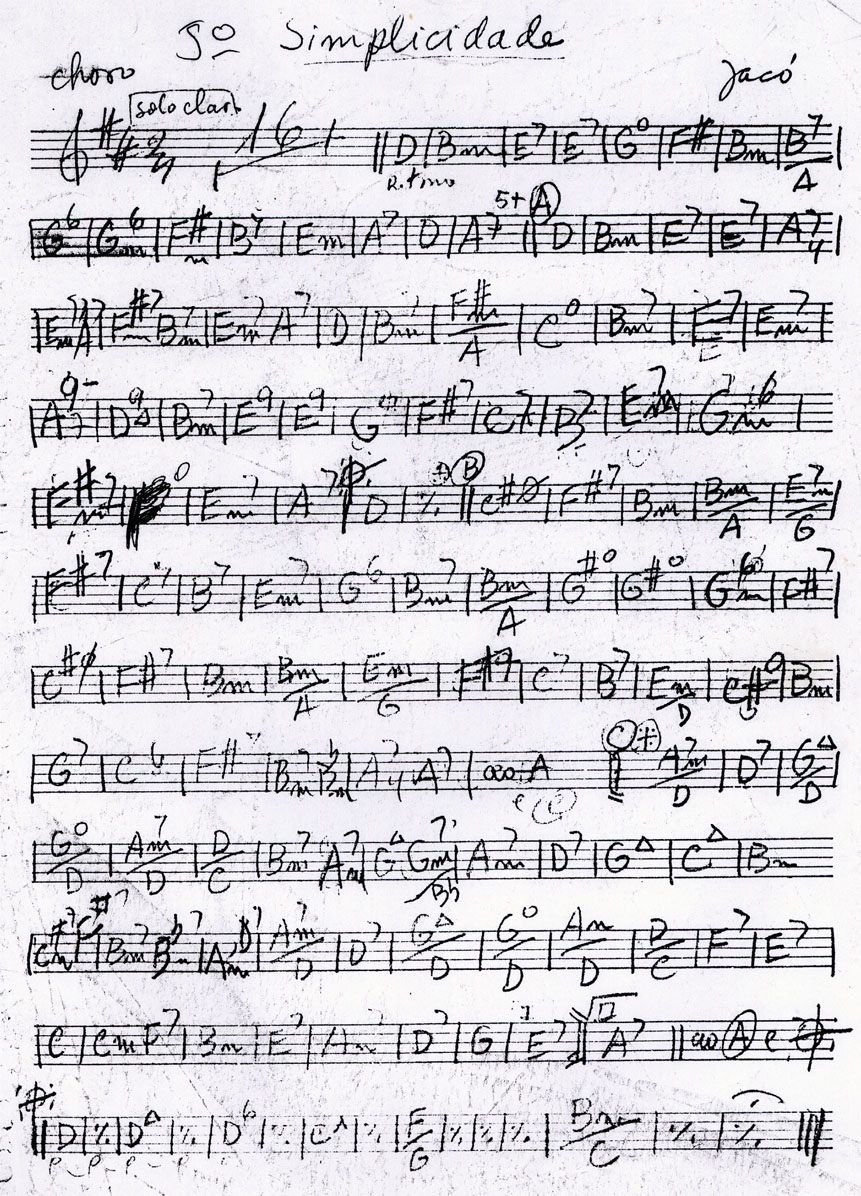 5º Simplicidade
choro Jacó
solo clar.
2/4 16 D Bm E7 E7 Gº F# Bm B7/A
Ritmo
G6 Gm6 F#m B7 Em A7 D A7 5+ (A) D Bm E7 E7 A7 4
Em7 A7 F#m7 Bm7 Em7 A7 D Bm7 F#m/A Cº Bm7 E7 Em7
A7 9- D9 Bm7 E9 E9 F#7 C7 B7 Em7 Gm6
F#m7 º Em7 A7 D ٪ (B) C#ø F#7 Bm Bm/A E7m/G
F#7 C7 B7 Em7 G6 Bm7 Bm/A G#º G#º Gm6 F#7
C#ø F#7 Bm Bm/A Em/G C7 B7 Em/D Bm
G7 F# Bm7 A7 4 A7 ao A (C) A7m/D D7 G△/D
Gº/D Am7/D D/C Bm7 Am7 G△ Gm7/Bb Am7 D7 G△ C△ Bm
C#m7 F#7 Bm7 Am7 Am7/D D7 G△/D Gº/D Am/D D/C F7 E7
C Cm F7 Bm E7 Am7 D7 G E7 A7 ao (A) e
D ٪ D△ ٪ D6 ٪ ٪ E/G ٪ ٪ ٪ Bm/C ٪ ٪